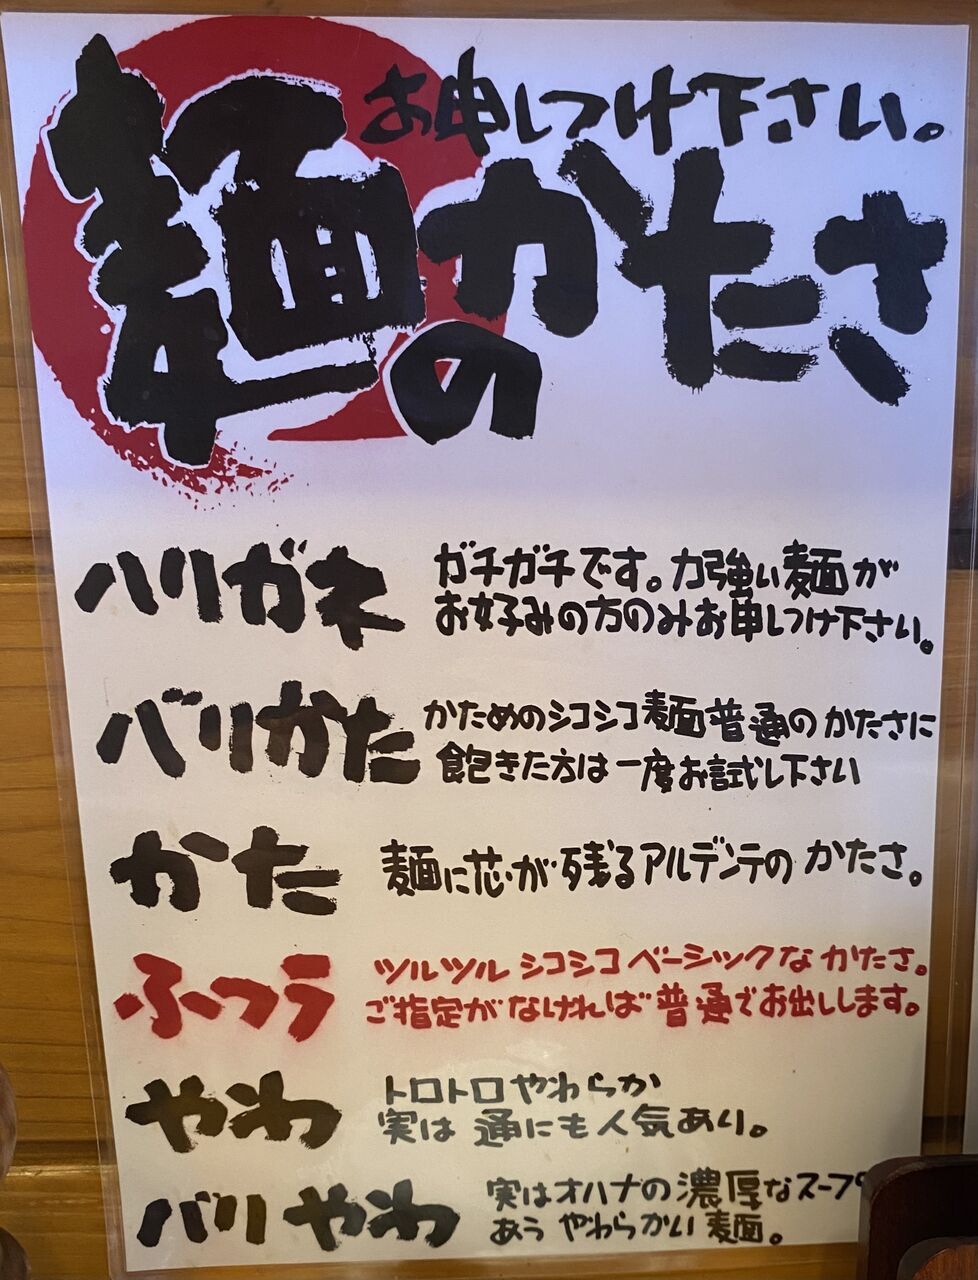 お申しつけ下さい。
麺のかたさ
ハリガネ
ガチガチです。力強い麺が
お好みの方のみお申しつけ下さい。
バリかた
かためのシコシコ麺普通のかたさに
飽きた方は一度お試し下さい
かた
麺に芯が残るアルデンテのかたさ。
ふつう
ツルツルシコシコベーシックなかたさ。
ご指定がなければ普通でお出しします。
やわ
トロトロやわらか
実は通にも人気あり。
バリやわ
実はオハナの濃厚なスープ
あうやわらかい麺。